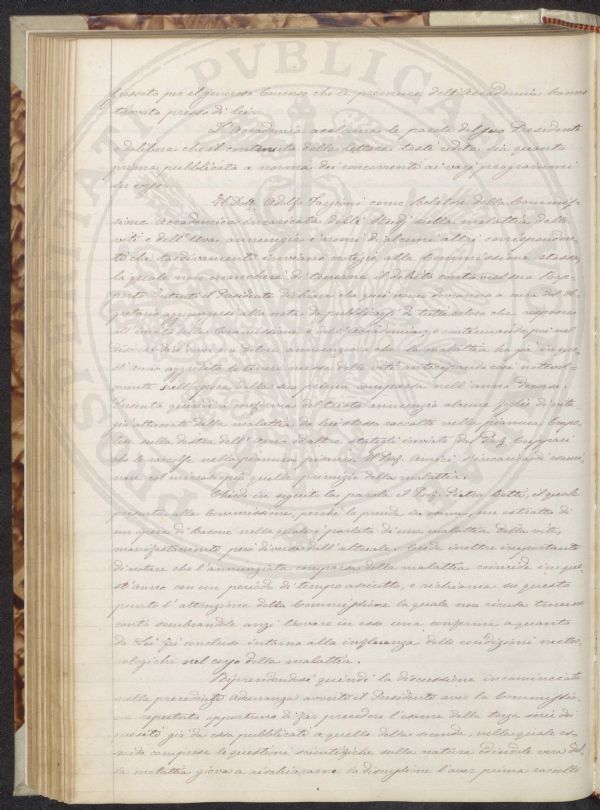 fosseto per il generoso concorso che le premure dell'Accademia hanno
trovato presso di lei.
L'Accademia acclama le parole del suo Presidente
e delibera che il contenuto della lettera teste letta sia quanto
prima pubblicato a norma dei concorrenti ai varj programmi
in esso.
Il Dott. Adolfo Targioni come Relatore della Commis-
sione Accademica incaricata degli Studj sulla malattia delle
viti e dell'Uva, annunzia i nomi di alcuni altri corrisponden-
ti che tardivamente inviano notizie alla Commissione stessa,
la quale non mancherà di tenerne il debito conto nel suo Rap-
porto. Intanto il Presidente dichiara che quei nomi dovranno a cura del Se-
gretario aggiungersi alla nota da pubblicarsi di tutti coloro che risposero
all'invito della Commissione e dell'Accademia, e continuando poi nel
dire si dà cura di dover annunziare che la malattia ha già in que-
st'anno aggredito le tenere messe delle viti anticipando così notevol-
mente sull'epoca della sua prima comparsa nell'anno decorso.
Presenta quindi a conferma del tristo annunzio alcune foglie di vite
già attaccate dalla malattia da lui stesso raccolte nella pianura Empo-
lese sulla destra dell'Arno ed altre stategli inviate dal Prof. Cuppari
che le raccolse nella pianura pisana. Il Prof. Amici s'incarica di esami-
nare col microscopio quelle primizie della malattia.
Chiede in seguito la parola il Prof. Pietro Betti, il quale
presenta alla Commissione, perchè la prenda in esame, un estratto di
un opera di Bacone nella quale è parlato di una malattia della vite,
manifestamente però diversa dall'attuale. Crede inoltre importante
di notare che l'annunziata comparsa della malattia coincide in que-
st'anno con un periodo di tempo asciutto, e richiama su questo
punto l'attenzione della Commissione la quale non ricusa tenerne
conto sembrandole anzi trovare in esso una conferma a quanto
da Lei fu concluso intorno alla influenza delle condizioni meteo-
rologiche nel corso della malattia.
Riprendendosi quindi la discussione incominciata
nella precedente Adunanza avverte il Presidente aver la Commissio-
ne reputato opportuno di far precedere l'esame della terza serie dei
quesiti già da essa pubblicati a quello della seconda, nella quale es-
sendo comprese le questioni scientifiche sulla natura ed indole vera del-
la malattia giova a rischiararne la discussione l'aver prima raccolto